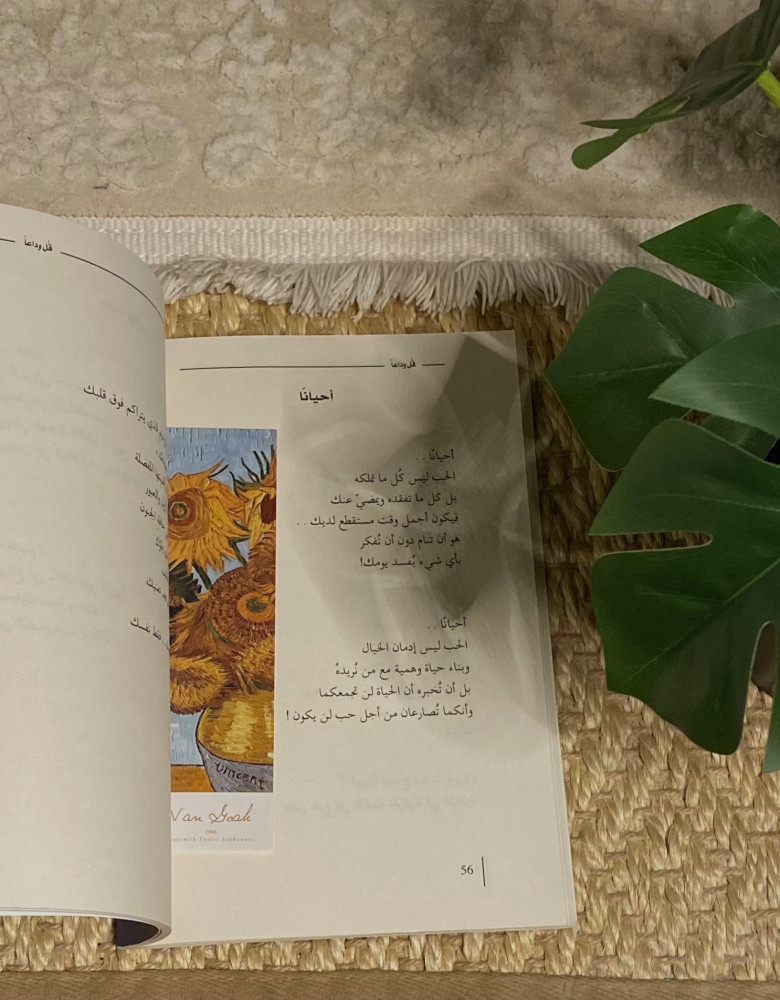 قُل وداعاً
أحيانًا
أحيانًا . .
الحب ليس كُل ما تملكه
بل كل ما تفقده ويمضيّ عنك
فيكون أجمل وقت مستقطع لديك . .
هو أن تنام دون أن تُفكر
بأي شيء يُفسد يومك!
أحيانًا . .
الحب ليس إدمان الخيال
وبناء حياة وهمية مع من تُريدهُ
بل أن تُخبره أن الحياة لن تجمعكما
وأنكما تُصارعان من أجل حب لن يكون !
56
قُل وداعاً
يتراكم فوق قلبك
فقط نفسك
Vincent
Van Gogh
with Twelve Sunflowers